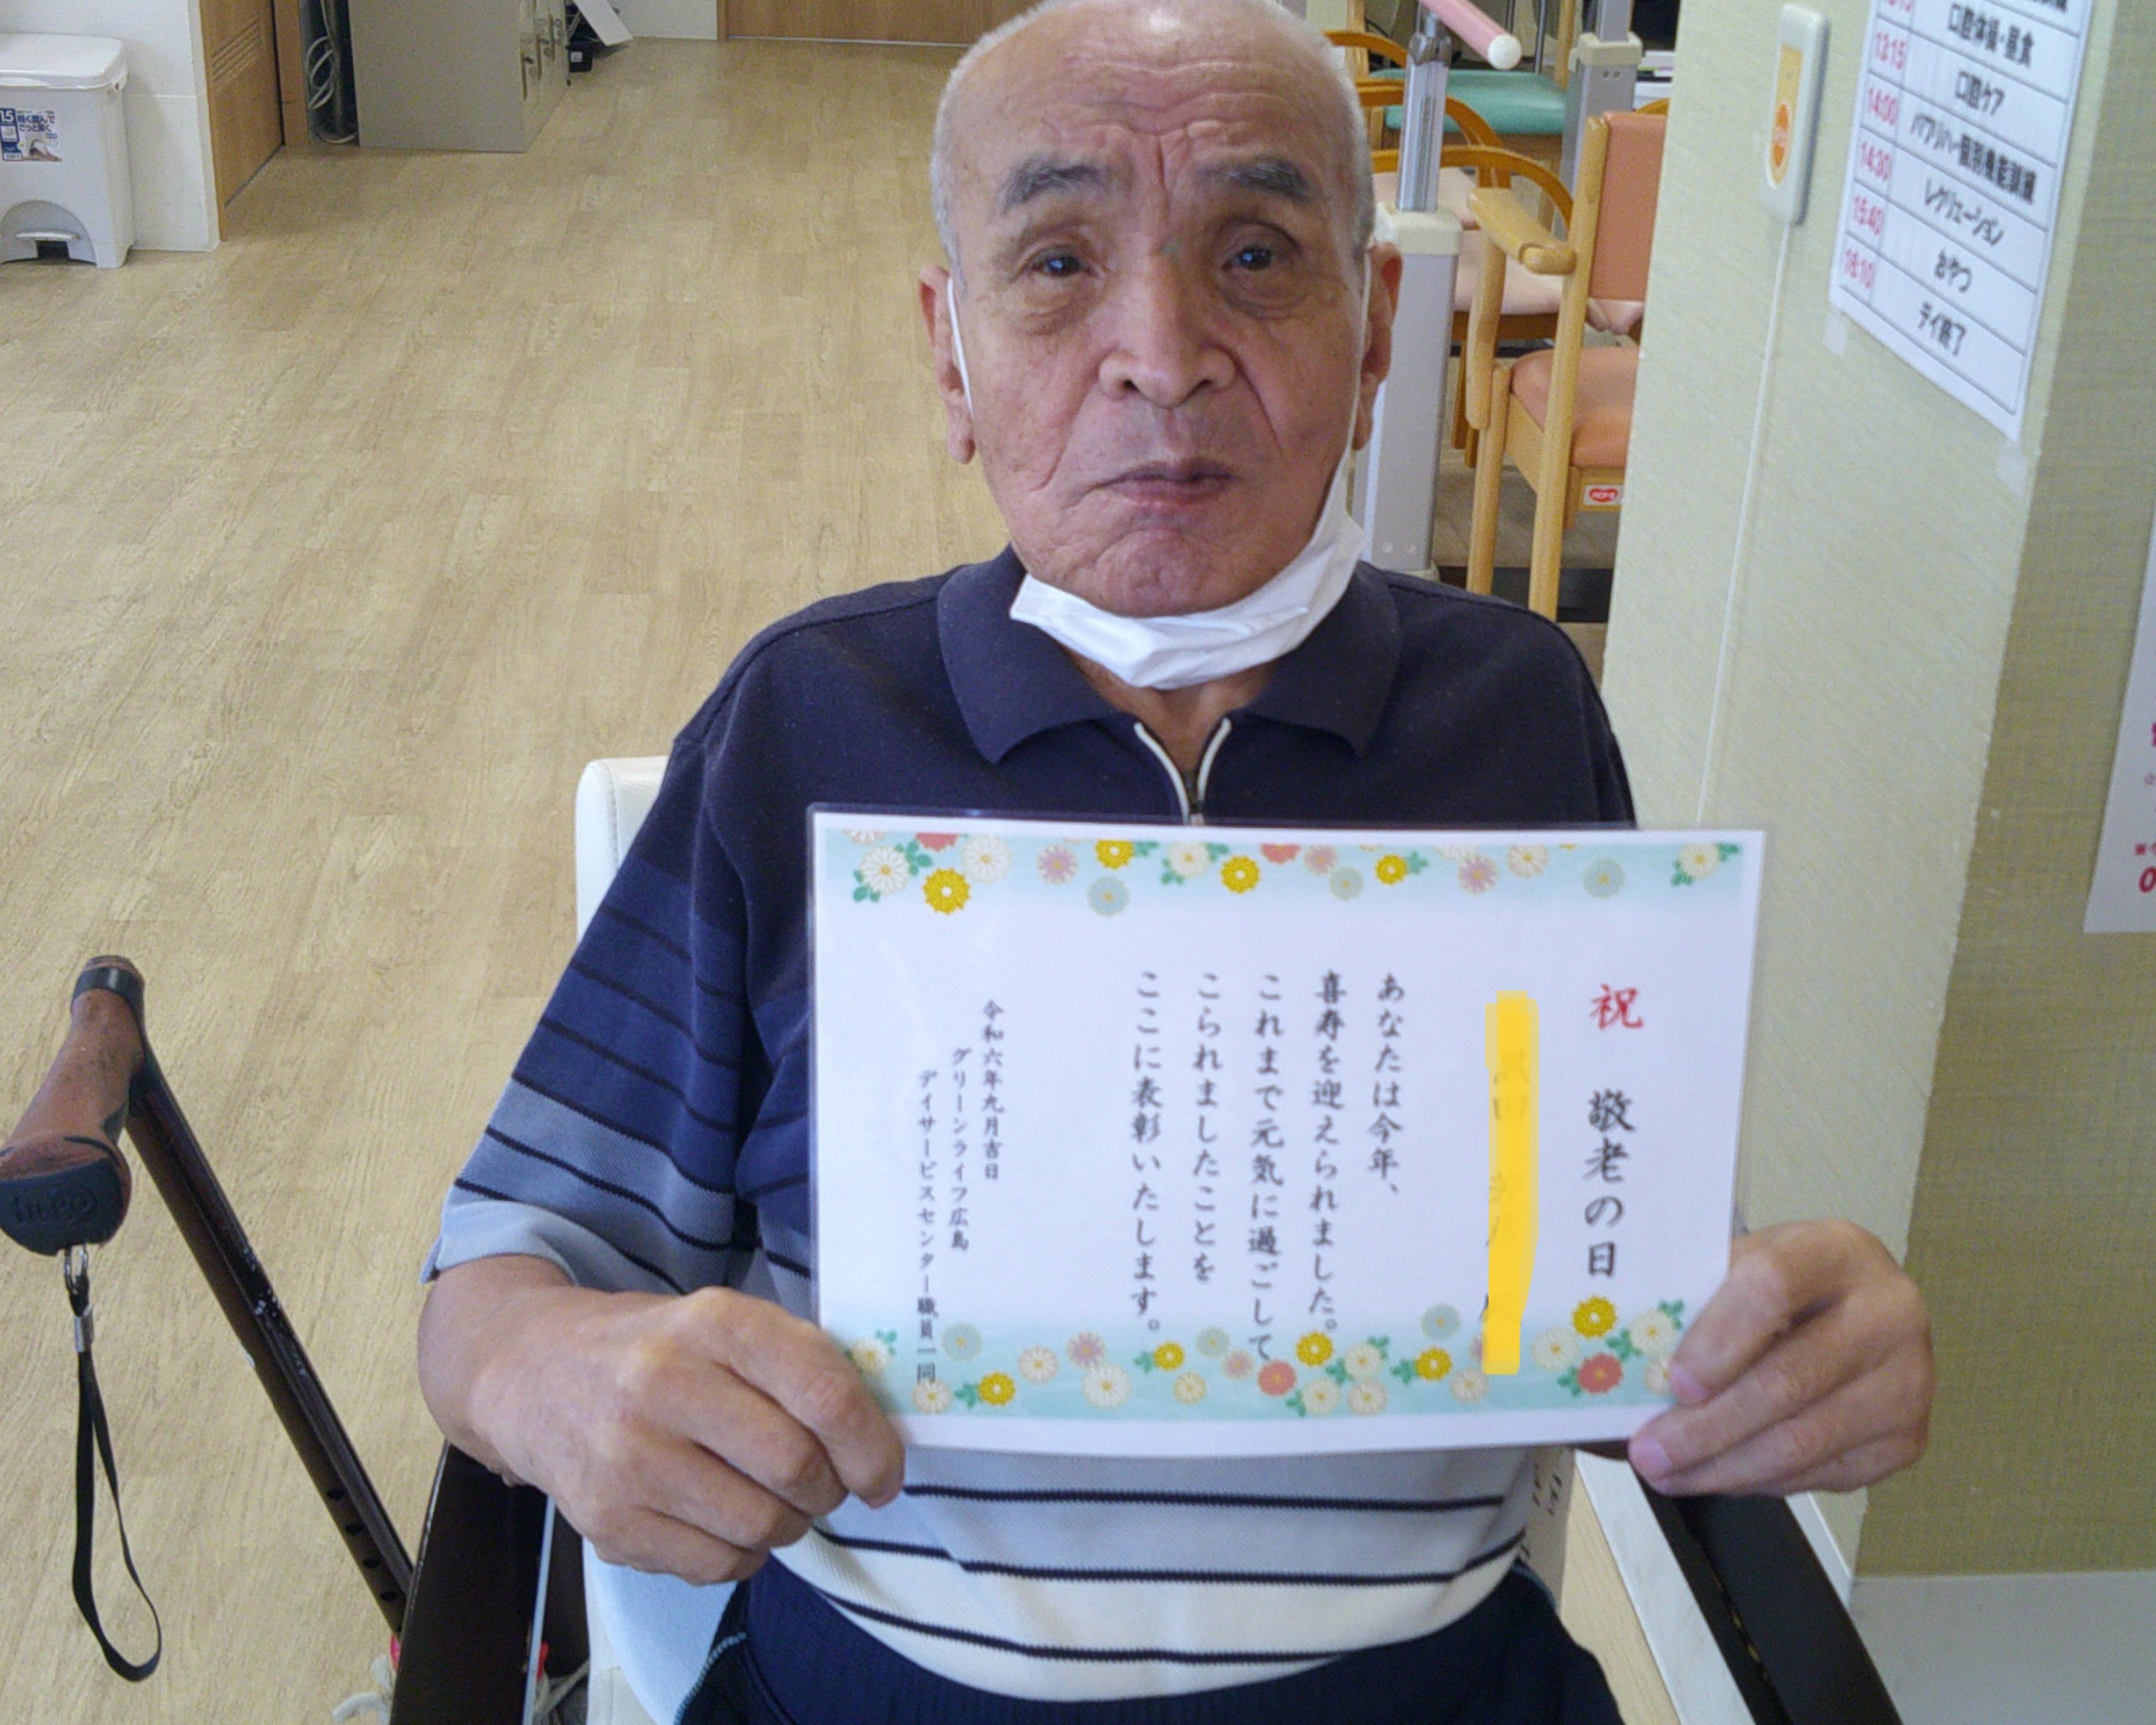 祝 敬老の日
あなたは今年、
喜寿を迎えられました。
これまで元気に過ごして
こられましたことを
ここに表彰いたします。
令和六年九月吉日
グリーンライフ広島
デイサービスセンター職員一同
口腔体操・昼食
13:15 口腔ケア
14:00 パワリハ・個別機能訓練
14:30 レクリェーション
15:40 おやつ
16:10 デイ終了
15
hugo